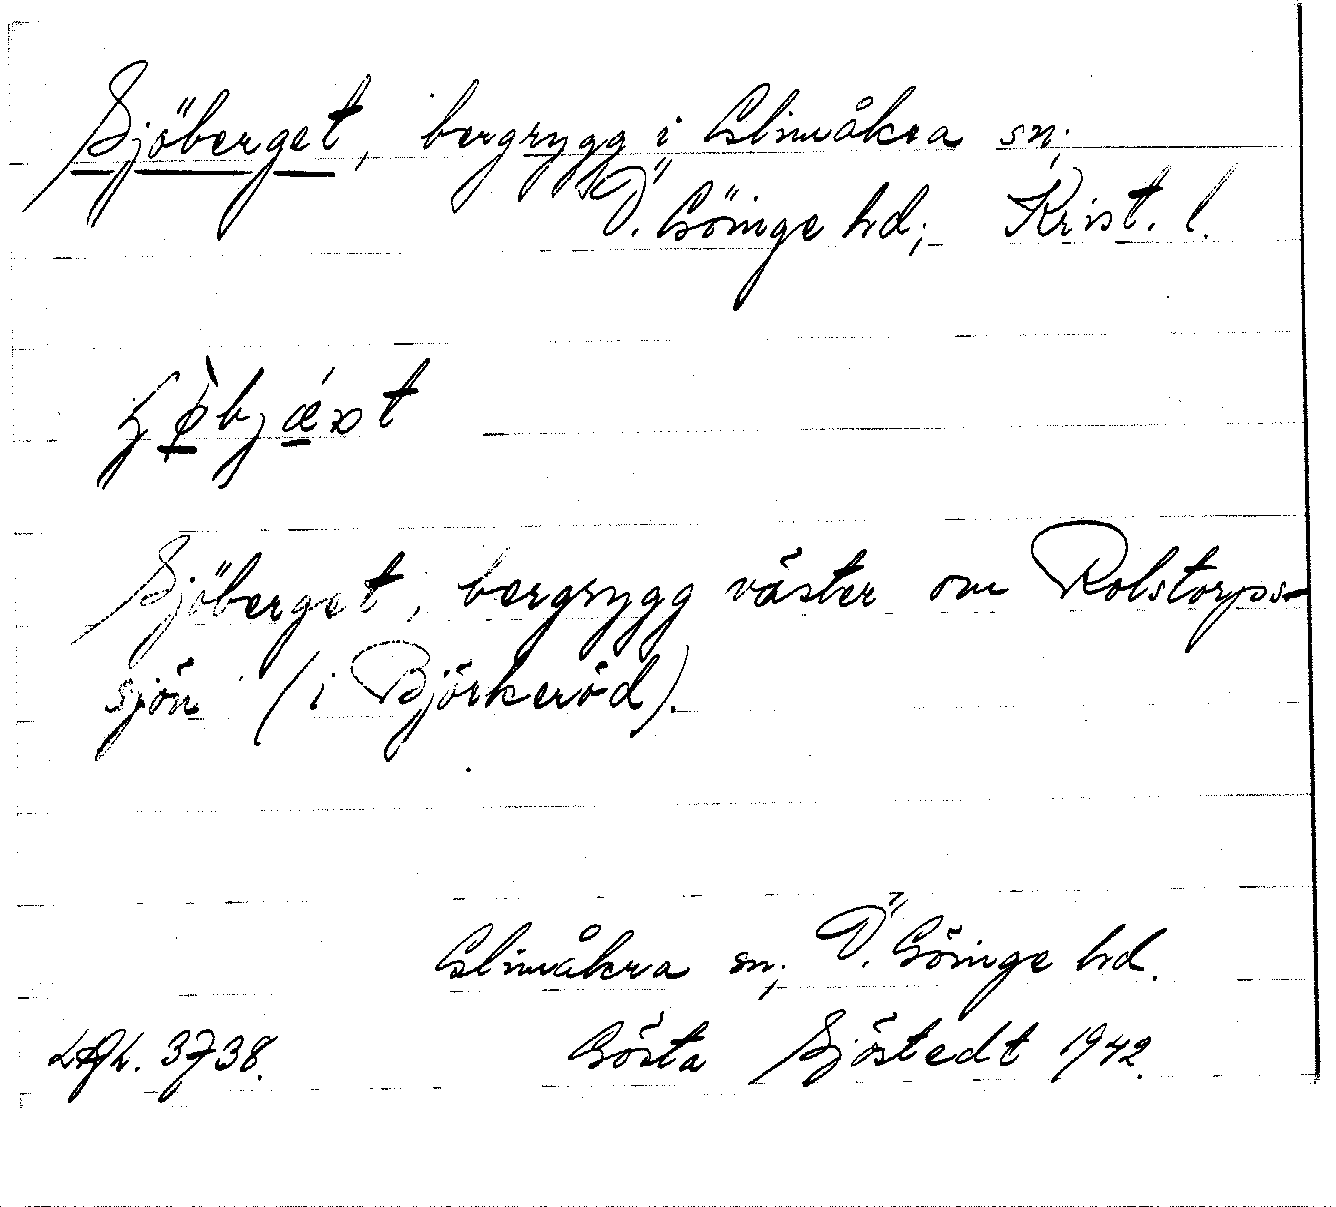 Sjöberget, bergrygg i Glimåkra sn;
Ö. Göinge hd; Krist. l.
Sjöberget, bergrygg väster om Rolstorps-
sjön (i Björkeröd).
Glimåkra sn; Ö. Göinge hd.
3738. Gösta Sjöstedt 1942.